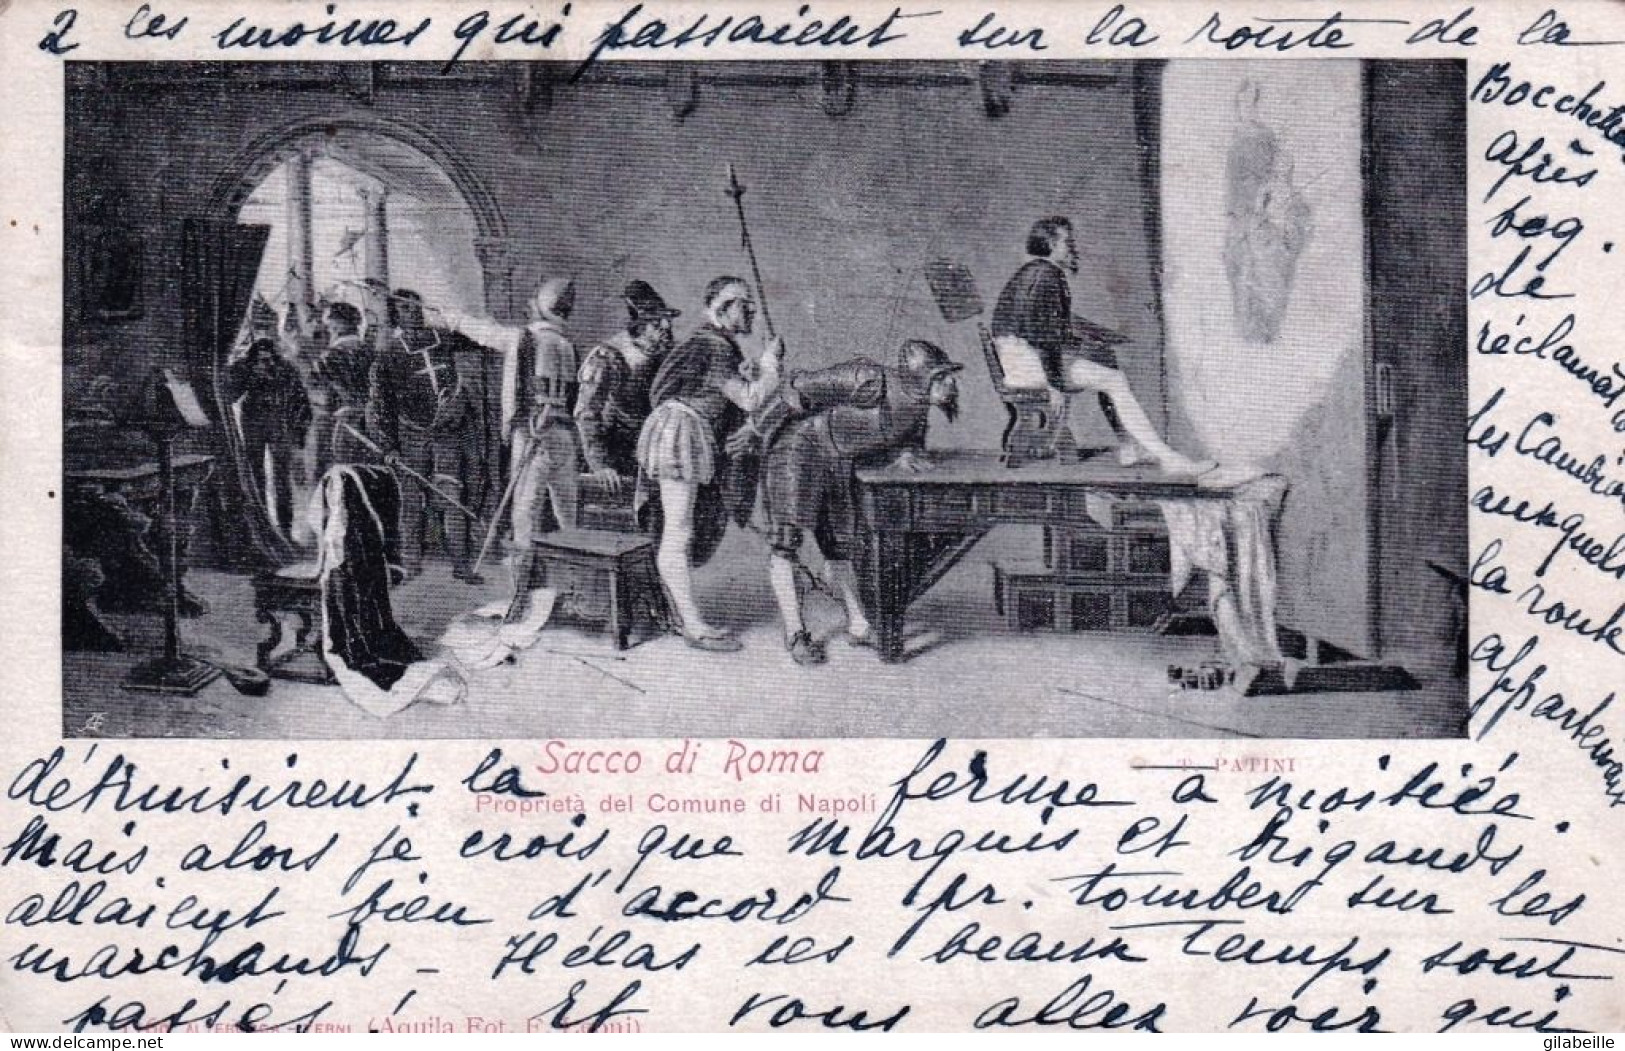 2 les moines qui passaient sur la route de la
Bocchetta
après
bcq.
de
réclamat°
les Cambia
auxquels
la route
appartenaient
détruisirent la ferme à moitiée.
Sacco di Roma
T. PATINI
Proprietà del Comune di Napoli
Mais alors je crois que Marquis et brigands
allaient bien d'accord pr. tomber sur les
marchands - Hélas ces beaux temps sont
passés ! Et vous allez voir qui
ALTEROCCA - TERNI (Aquila Fot. E.
gilabeille